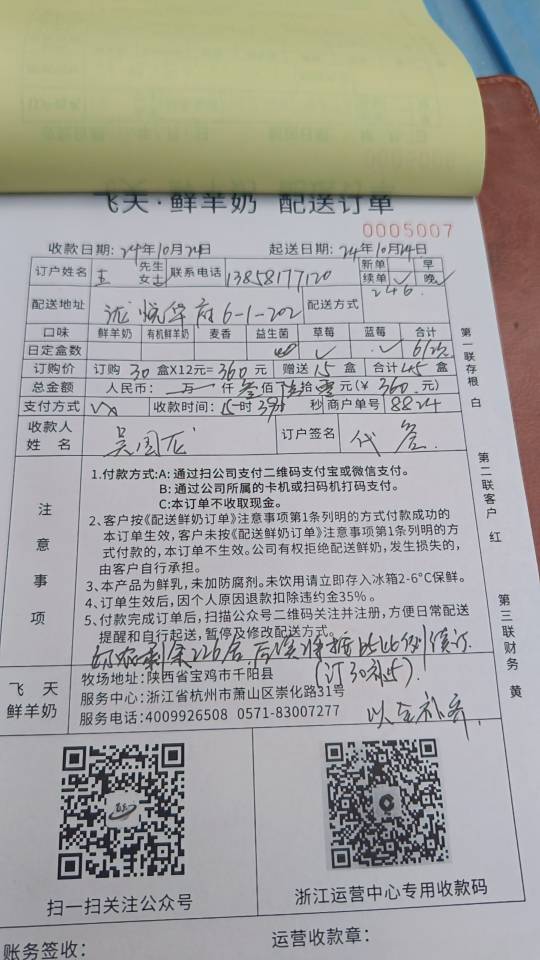 飞天·鲜羊奶 配送订单
0005007
收款日期: 24年10月24日 起送日期: 24年10月24日
订户姓名 王 先生 女士 联系电话 13858177120 新单 续单 ✓ 早 晚 ✓
配送地址 泷悦华府6-1-202 配送方式 246.
口味 鲜羊奶 有机鲜羊奶 麦香 益生菌 草莓 蓝莓 合计
日定盒数 ✓ ✓ 6/次
订购价 订购 30 盒X12元= 360 元 赠送 15 盒 合计 45 盒
总金额 人民币: 万 仟 叁佰 陆拾 零元(￥ 360 元)
支付方式 收款时间: 15时39分 秒 商户单号 8824
收款人姓名 吴国龙 订户签名 代签
注意事项
1.付款方式:A: 通过扫公司支付二维码支付宝或微信支付。
B: 通过公司所属的卡机或扫码机打码支付。
C:本订单不收取现金。
2、客户按《配送鲜奶订单》注意事项第1条列明的方式付款成功的
本订单生效，客户未按《配送鲜奶订单》注意事项第1条列明的方
式付款的，本订单不生效。公司有权拒绝配送鲜奶，发生损失的，
由客户自行承担。
3、本产品为鲜乳，未加防腐剂。未饮用请立即存入冰箱2-6°C保鲜。
4、订单生效后，因个人原因退款扣除违约金35%。
5、付款完成订单后，扫描公众号二维码关注并注册，方便日常配送
提醒和自行起送，暂停及修改配送方式。
剩余226启, 后续将按此比例续订
(订30补15).
以全补齐.
飞天鲜羊奶
牧场地址: 陕西省宝鸡市千阳县
服务中心: 浙江省杭州市萧山区崇化路31号
服务电话: 4009926508 0571-83007277
扫一扫关注公众号
浙江运营中心专用收款码
账务签收:
运营收款章:
第一联存根 白
第二联客户 红
第三联财务 黄